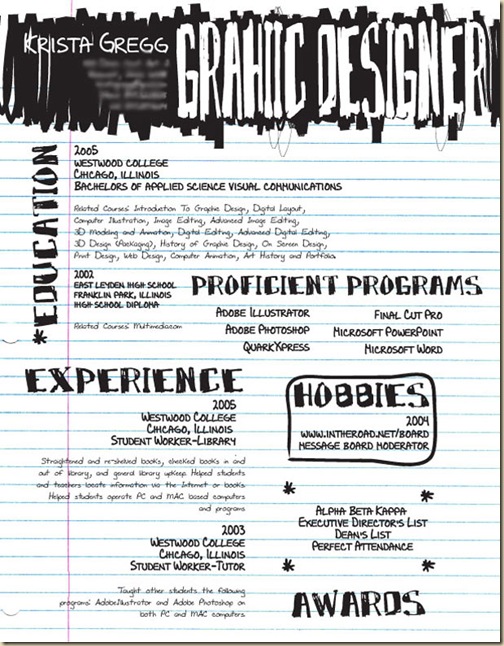 Krista Gregg
GRAHIIC DESIGNER
*EDUCATION
2005
Westwood College
Chicago, Illinois
Bachelors of Applied Science Visual Communications
Related Courses: Introduction To Graphic Design, Digital Layout,
Computer Illustration, Image Editing, Advanced Image Editing,
3D Modeling and Animation, Digital Editing, Advanced Digital Editing,
3D Design (Packaging), History of Graphic Design, On Screen Design,
Print Design, Web Design, Computer Animation, Art History and Portfolio.
2002
East Leyden High School
Franklin Park, Illinois
High School Diploma
Related Courses: Multimedia.com
PROFICIENT PROGRAMS
Adobe Illustrator
Adobe Photoshop
QuarkXpress
Final Cut Pro
Microsoft PowerPoint
Microsoft Word
EXPERIENCE
2005
Westwood College
Chicago, Illinois
Student Worker-Library
Straightened and re-shelved books, checked books in and
out of library, and general library upkeep. Helped students
and teachers locate information via the Internet or books.
Helped students operate PC and MAC based computers
and programs
2003
Westwood College
Chicago, Illinois
Student Worker-Tutor
Taught other students the following
programs: Adobe Illustrator and Adobe Photoshop on
both PC and MAC computers
HOBBIES
2004
www.intheroad.net/board
Message Board Moderator
* *
Alpha Beta Kappa
Executive Director's List
Dean's List
Perfect Attendance
* *
AWARDS